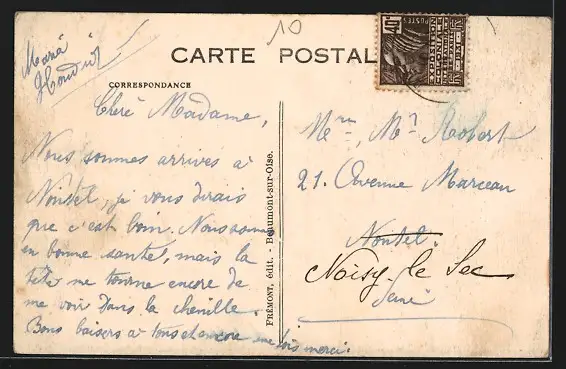 10
CARTE POSTALE
CORRESPONDANCE
Maria
Chère Madame,
Nous sommes arrivés à
Nointel, je vous dirais
que c'est loin. Nous sommes
en bonne santé, mais la
tête me tourne encore de
me voir dans la chenille.
Bons baisers à tous et encore une fois merci.
FRÉMONT, édit. - Beaumont-sur-Oise.
POSTES
40c
EXPOSITION
COLONIALE
INTERNATIONALE
PARIS
1931
Mme, Mr Robert
21. Avenue Marceau
Nointel.
Noisy-le Sec
Seine